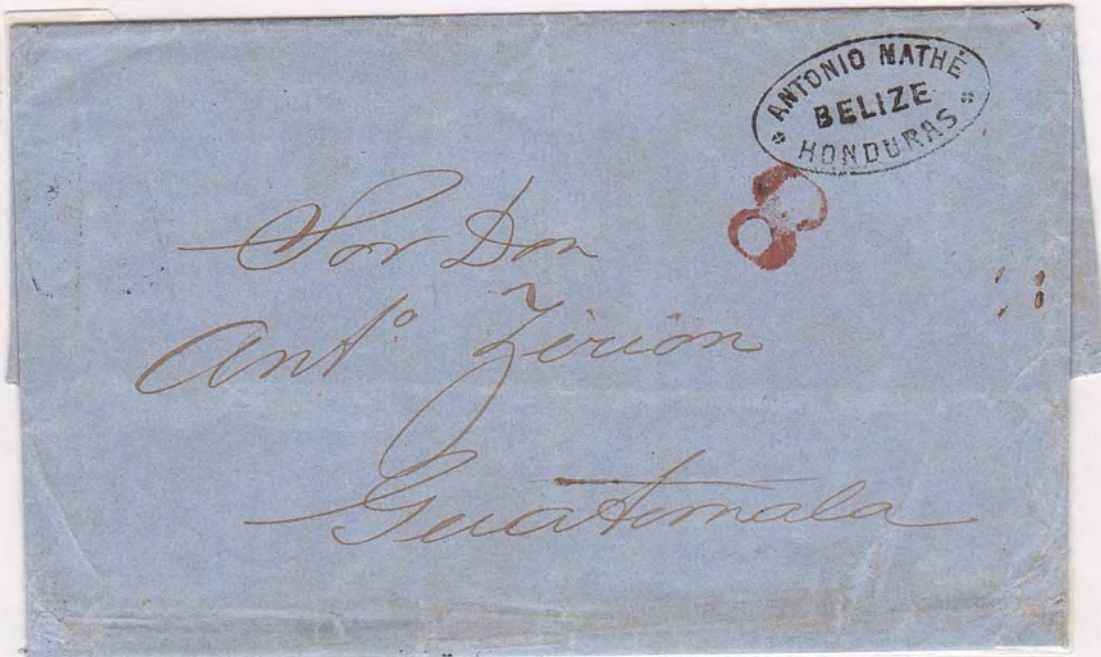 ANTONIO MATHÉ
BELIZE
HONDURAS
8
Sor Don
Anto Zirión
Guatemala